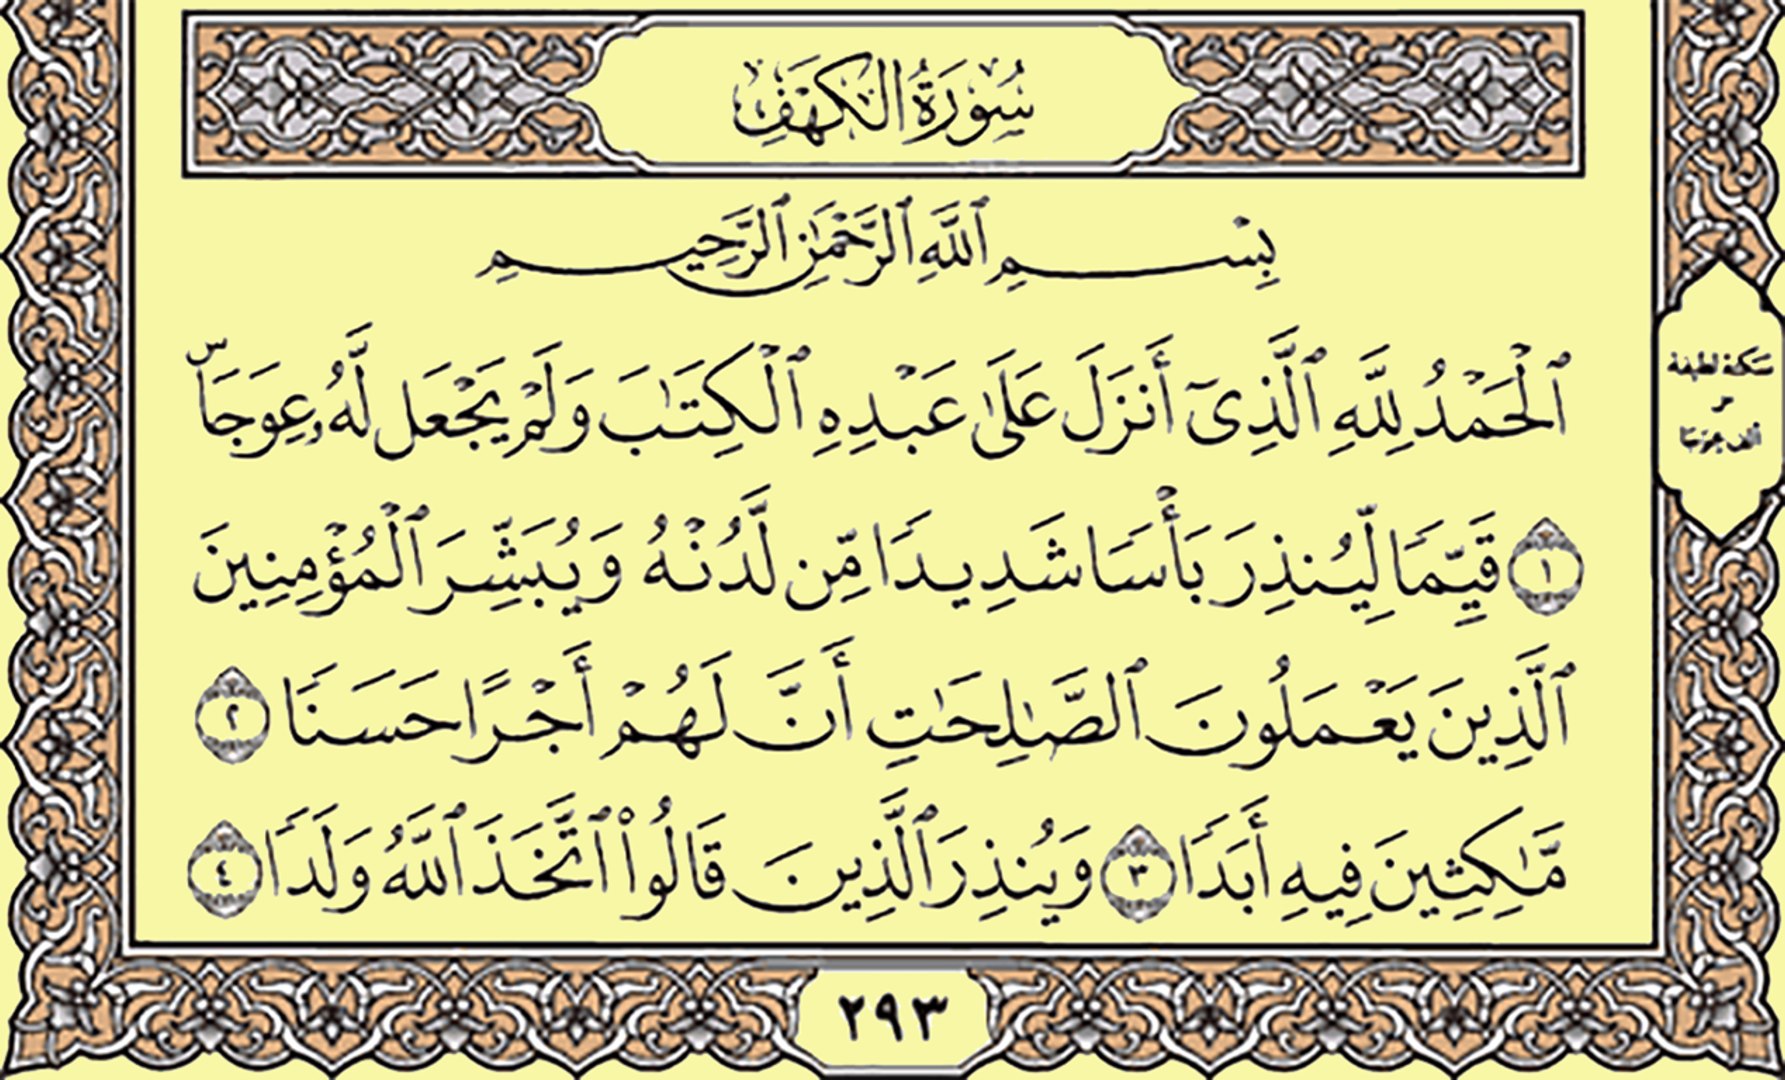 سُورَةُ الكَهْفِ
بِسْمِ ٱللَّهِ ٱلرَّحْمَٰنِ ٱلرَّحِيمِ
ٱلْحَمْدُ لِلَّهِ ٱلَّذِىٓ أَنزَلَ عَلَىٰ عَبْدِهِ ٱلْكِتَٰبَ وَلَمْ يَجْعَل لَّهُۥ عِوَجَاۜ
١ قَيِّمًا لِّيُنذِرَ بَأْسًا شَدِيدًا مِّن لَّدُنْهُ وَيُبَشِّرَ ٱلْمُؤْمِنِينَ
ٱلَّذِينَ يَعْمَلُونَ ٱلصَّٰلِحَٰتِ أَنَّ لَهُمْ أَجْرًا حَسَنًا ٢
مَّٰكِثِينَ فِيهِ أَبَدًا ٣ وَيُنذِرَ ٱلَّذِينَ قَالُوا۟ ٱتَّخَذَ ٱللَّهُ وَلَدًا ٤
سكتة لطيفة
٢٩٣